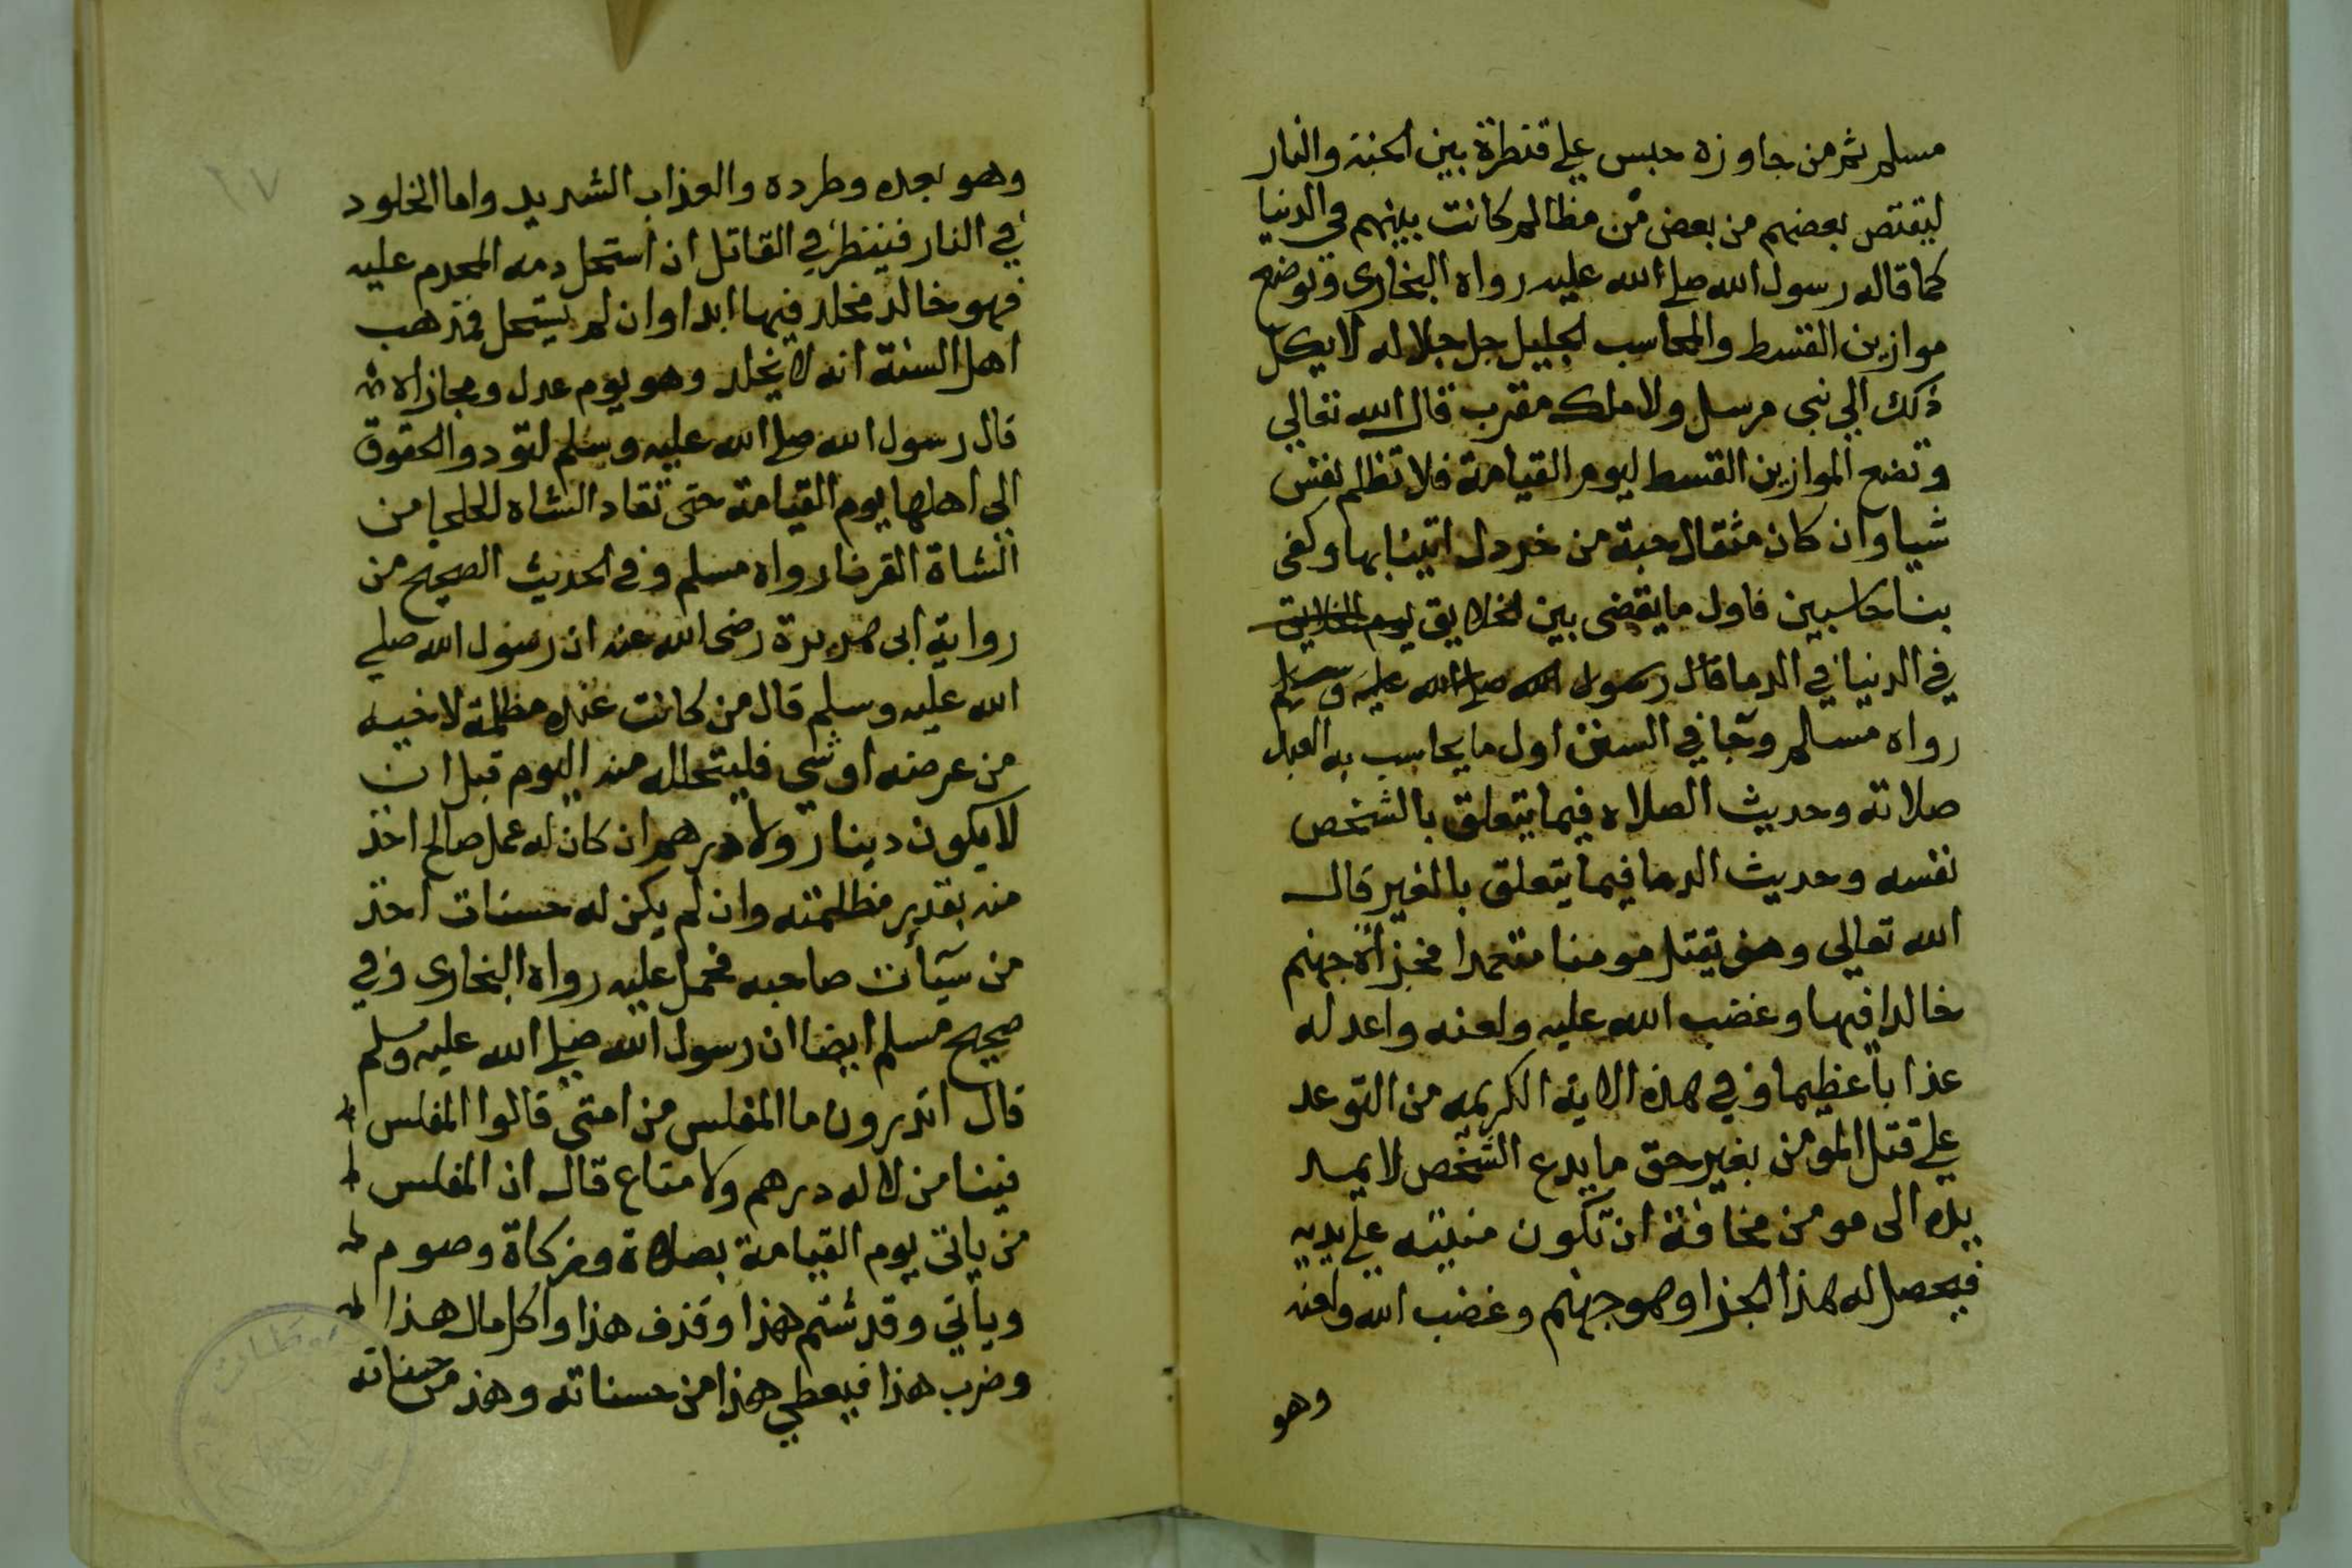 مسلم ثم من جاوزه حبس علي قنطرة بين الجنة والنار
ليقتص بعضهم من بعض من مظالم كانت بينهم في الدنيا
كما قاله رسول الله صلي الله عليه رواه البخارى وتوضع
موازين القسط والمحاسب الجليل جل جلاله لا يكل
ذلك الي نبي مرسل ولا ملك مقرب قال الله تعالي
ونضع الموازين القسط ليوم القيامة فلا تظلم نفس
شيا وان كان مثقال حبة من خردل اتينا بها وكفى
بنا حاسبين فاول ما يقضى بين الخلايق يوم الخلايق
في الدنيا في الدما قال رسول الله صلي الله عليه وسلم
رواه مسلم وجا في السنن اول ما يحاسب به العبد
صلاته وحديث الصلاه فيما يتعلق بالشخص
نفسه وحديث الدما فيما يتعلق بالغير قال
الله تعالي ومن يقتل مومنا متعمدا فجزاه جهنم
خالدا فيها وغضب الله عليه ولعنه واعد له
عذابا عظيما وفي هذه الاية الكريمه من التوعد
علي قتل المومن بغير حق ما يدع الشخص لا يمد
يده الى مومن مخافة ان تكون منيته علي يديه
فيحصل له هذا الجزا وهو جهنم وغضب الله ولعنه
وهو
١٧
وهو بعده وطرده والعذاب الشديد واما الخلود
في النار فينظر في القاتل ان استحل دمه المحرم عليه
فهو خالد مخلد فيها ابدا وان لم يستحل فمذهب
اهل السنة انه لا يخلد وهو يوم عدل ومجازاه
قال رسول الله صلي الله عليه وسلم لتودوا الحقوق
الي اهلها يوم القيامة حتى تقاد الشاه الجلحا من
الشاة القرنا رواه مسلم وفي الحديث الصحيح من
رواية ابى هريرة رضى الله عنه ان رسول الله صلي
الله عليه وسلم قال من كانت عنده مظلمة لاخيه
من عرضه او شي فليتحلله منه اليوم قبل ان
لا يكون دينار ولا درهم ان كان له عمل صالح اخذ
منه بقدر مظلمته وان لم يكن له حسنات اخذ
من سيآت صاحبه فحمل عليه رواه البخارى وفي
صحيح مسلم ايضا ان رسول الله صلي الله عليه وسلم
قال اتدرون ما المفلس من امتى قالوا المفلس
فينا من لا له درهم ولا متاع قال ان المفلس
من ياتى يوم القيامة بصلاة وزكاة وصوم
وياتي وقد شتم هذا وقذف هذا واكل مال هذا
وضرب هذا فيعطي هذا من حسناته وهذ من حسناته